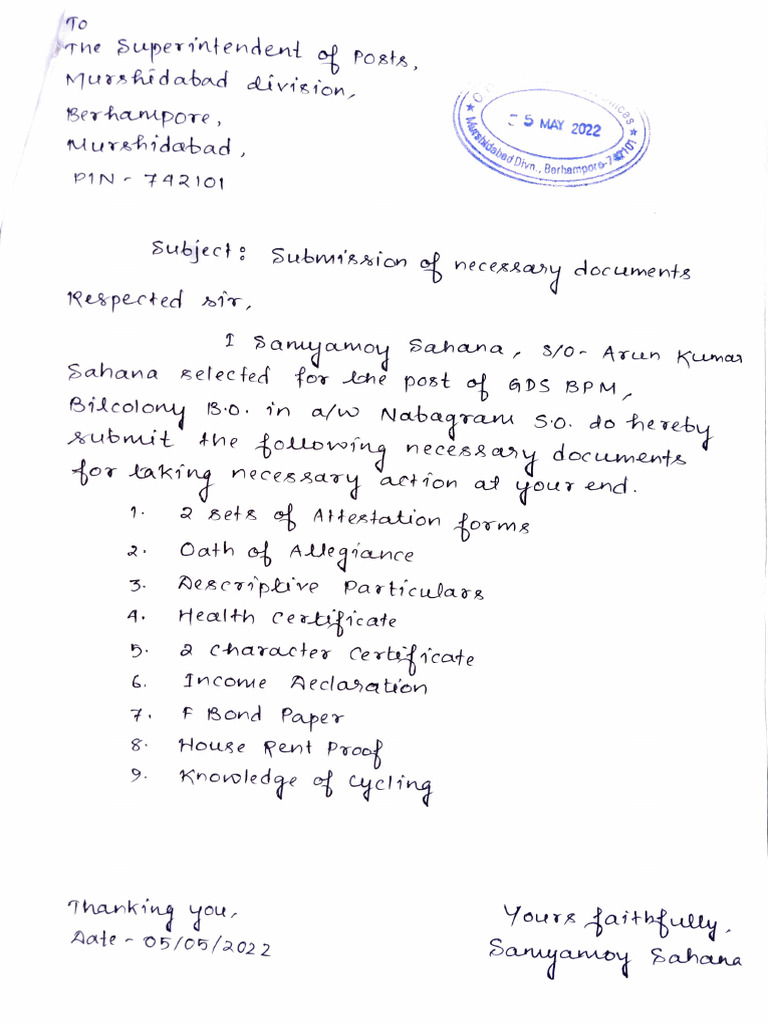 To
The Superintendent of Posts,
Murshidabad division,
Berhampore,
Murshidabad,
PIN - 742101
5 MAY 2022
Murshidabad Divn., Berhampore-742101
Subject: Submission of necessary documents
Respected sir,
I Samyamoy Sahana, S/O- Arun Kumar
Sahana selected for the post of GDS BPM,
Bilcolony B.O. in a/w Nabagram S.O. do hereby
submit the following necessary documents
for taking necessary action at your end.
1. 2 sets of Attestation forms
2. Oath of Allegiance
3. Descriptive Particulars
4. Health Certificate
5. 2 Character Certificate
6. Income Declaration
7. F Bond Paper
8. House Rent Proof
9. Knowledge of Cycling
Thanking you,
Date - 05/05/2022
Yours faithfully,
Samyamoy Sahana